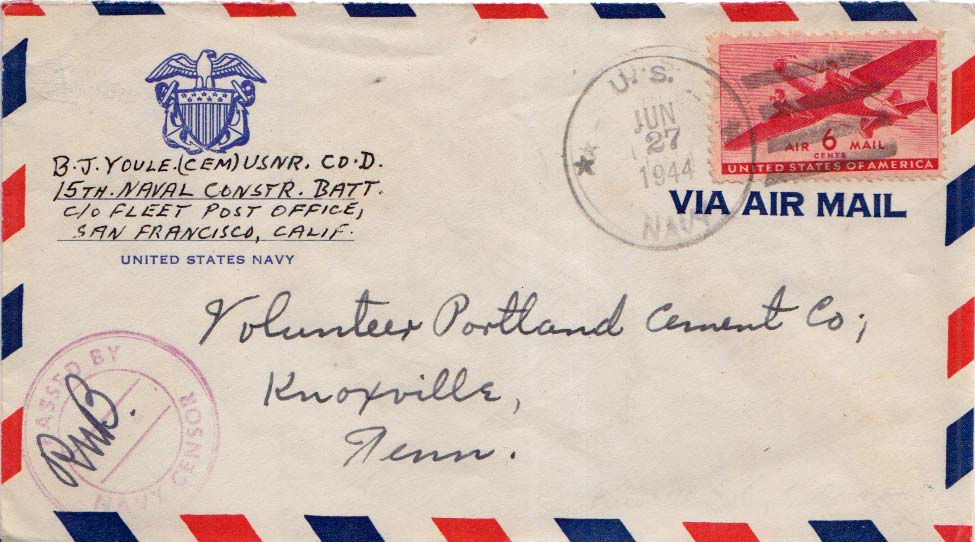 B.J. YOULE.(CEM) USNR. CO.D.
15TH. NAVAL CONSTR. BATT.
C/O FLEET POST OFFICE,
SAN FRANCISCO, CALIF.
UNITED STATES NAVY
U.S.
JUN
27
1944
NAVY
AIR 6 MAIL
CENTS
UNITED STATES OF AMERICA
VIA AIR MAIL
Volunteer Portland Cement Co;
Knoxville,
Tenn.
PASSED BY
RMB.
NAVY CENSOR